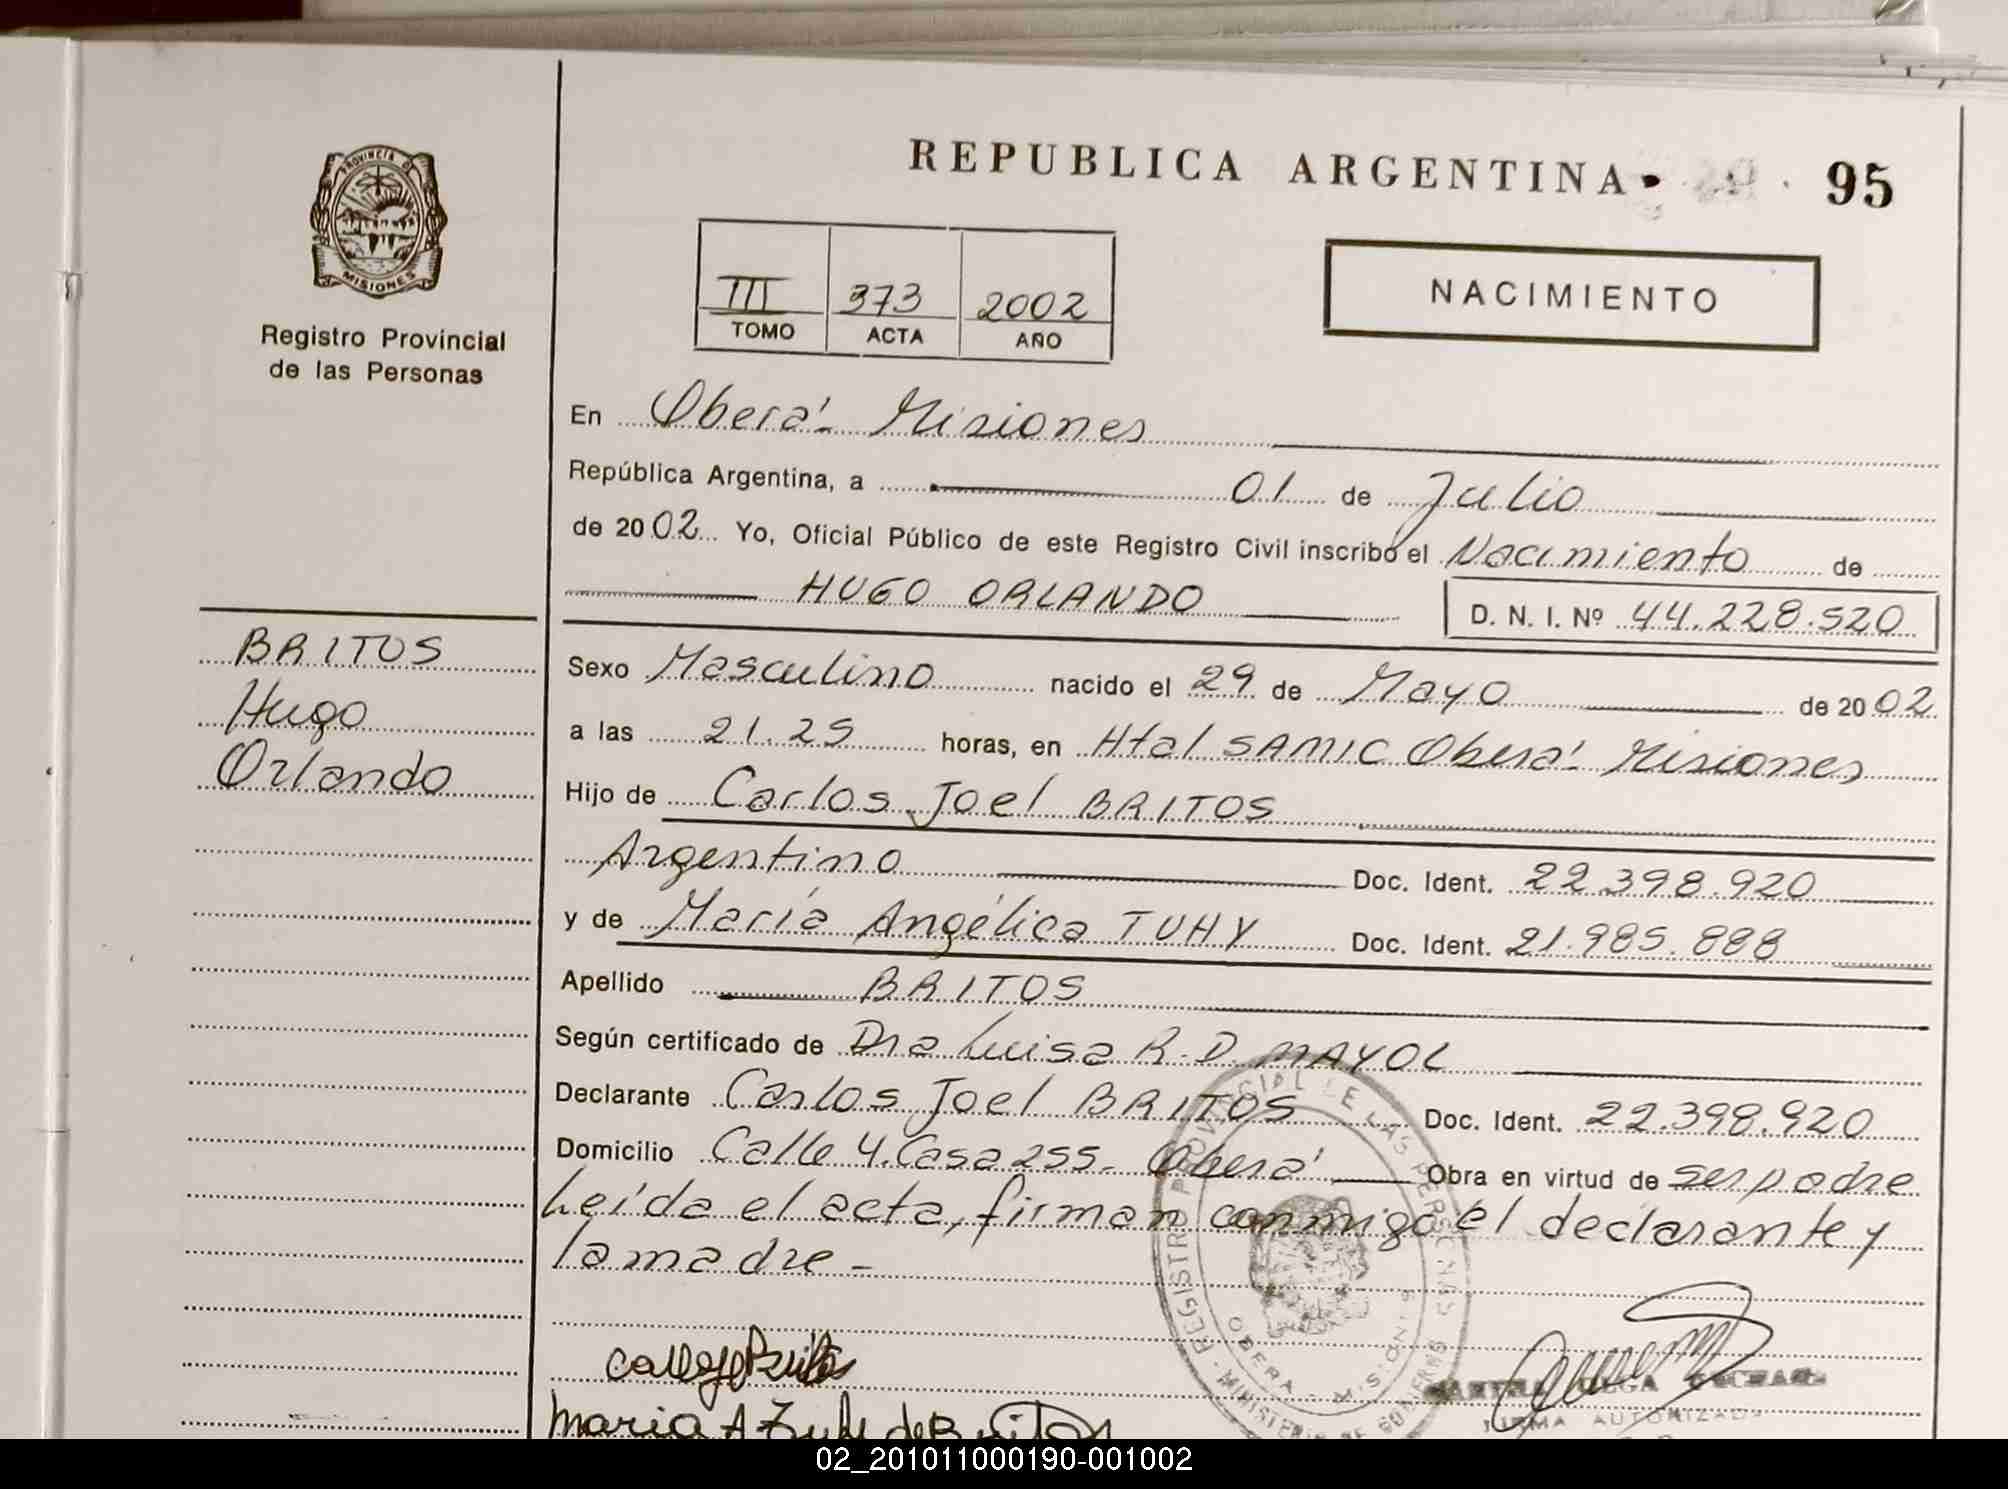 REPUBLICA ARGENTINA
95
PROVINCIA DE
MISIONES
Registro Provincial
de las Personas
III 373 2002
TOMO ACTA AÑO
NACIMIENTO
En Oberá - Misiones
República Argentina, a 01 de Julio
de 2002 Yo, Oficial Público de este Registro Civil inscribo el Nacimiento de
HUGO ORLANDO D. N. I. Nº 44.228.520
BRITOS
Hugo
Orlando
Sexo Masculino nacido el 29 de Mayo de 2002
a las 21.25 horas, en Htal SAMIC Oberá - Misiones
Hijo de Carlos Joel BRITOS
Argentino Doc. Ident. 22.398.920
y de María Angélica TUHY Doc. Ident. 21.985.888
Apellido BRITOS
Según certificado de Dra Luisa R. D. MAYOL
Declarante Carlos Joel BRITOS Doc. Ident. 22.398.920
Domicilio Calle 4. Casa 255 - Oberá Obra en virtud de ser padre
Leída el acta, firman conmigo el declarante y
la madre -
REGISTRO PROVINCIAL DE LAS PERSONAS
MINISTERIO DE GOBIERNO
OBERA
FIRMA AUTORIZADA
02_201011000190-001002